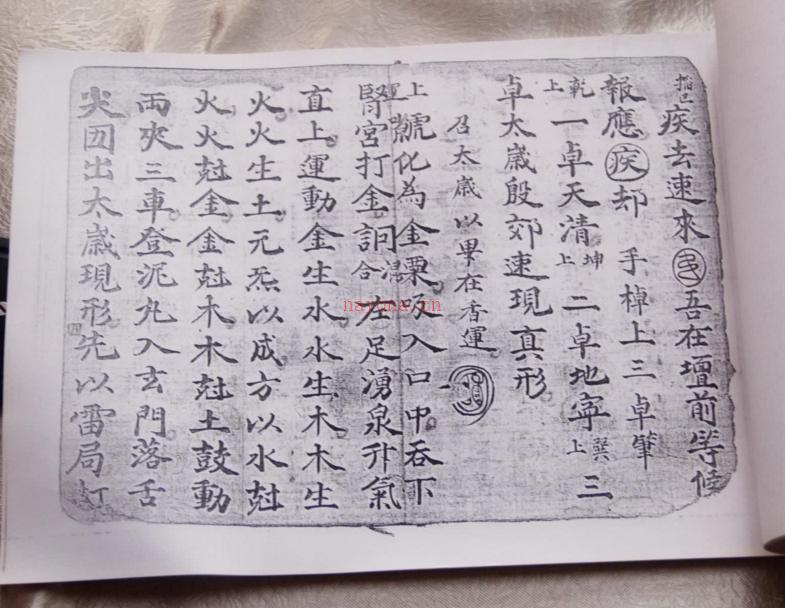 疾去速來吾在壇前等候
報應疾却 手棹上三卓肇
乾上一卓天清坤上二卓地寧巽上三
卓太歲殷郊速現真形
召太歲以畢在香運
上號化為金粟吸入口中吞下
腎宮打金詷合左足湧泉升氣
直上運動金生水水生木木生
火火生土元炁以成方以水尅
火火尅金金尅木木尅土鼓動
両夾三車登泥丸入玄門落舌
尖囙出太歲現形先以雷局打
四